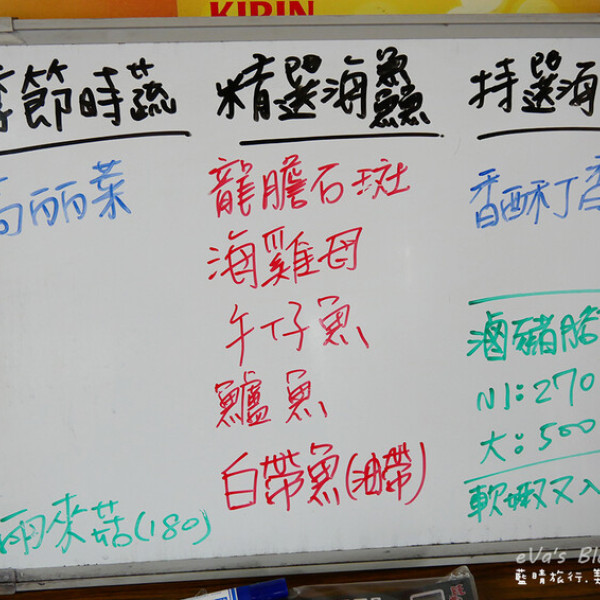 KIRIN
季節時蔬
高麗菜
雨來菇(180)
精選海鱻
龍膽石斑
海雞母
午仔魚
鱸魚
白帶魚(油帶)
特選海
香酥丁香
滷豬腳
小:270
大:500
軟蝦又入
eVa's Bl
藍晴旅行.美